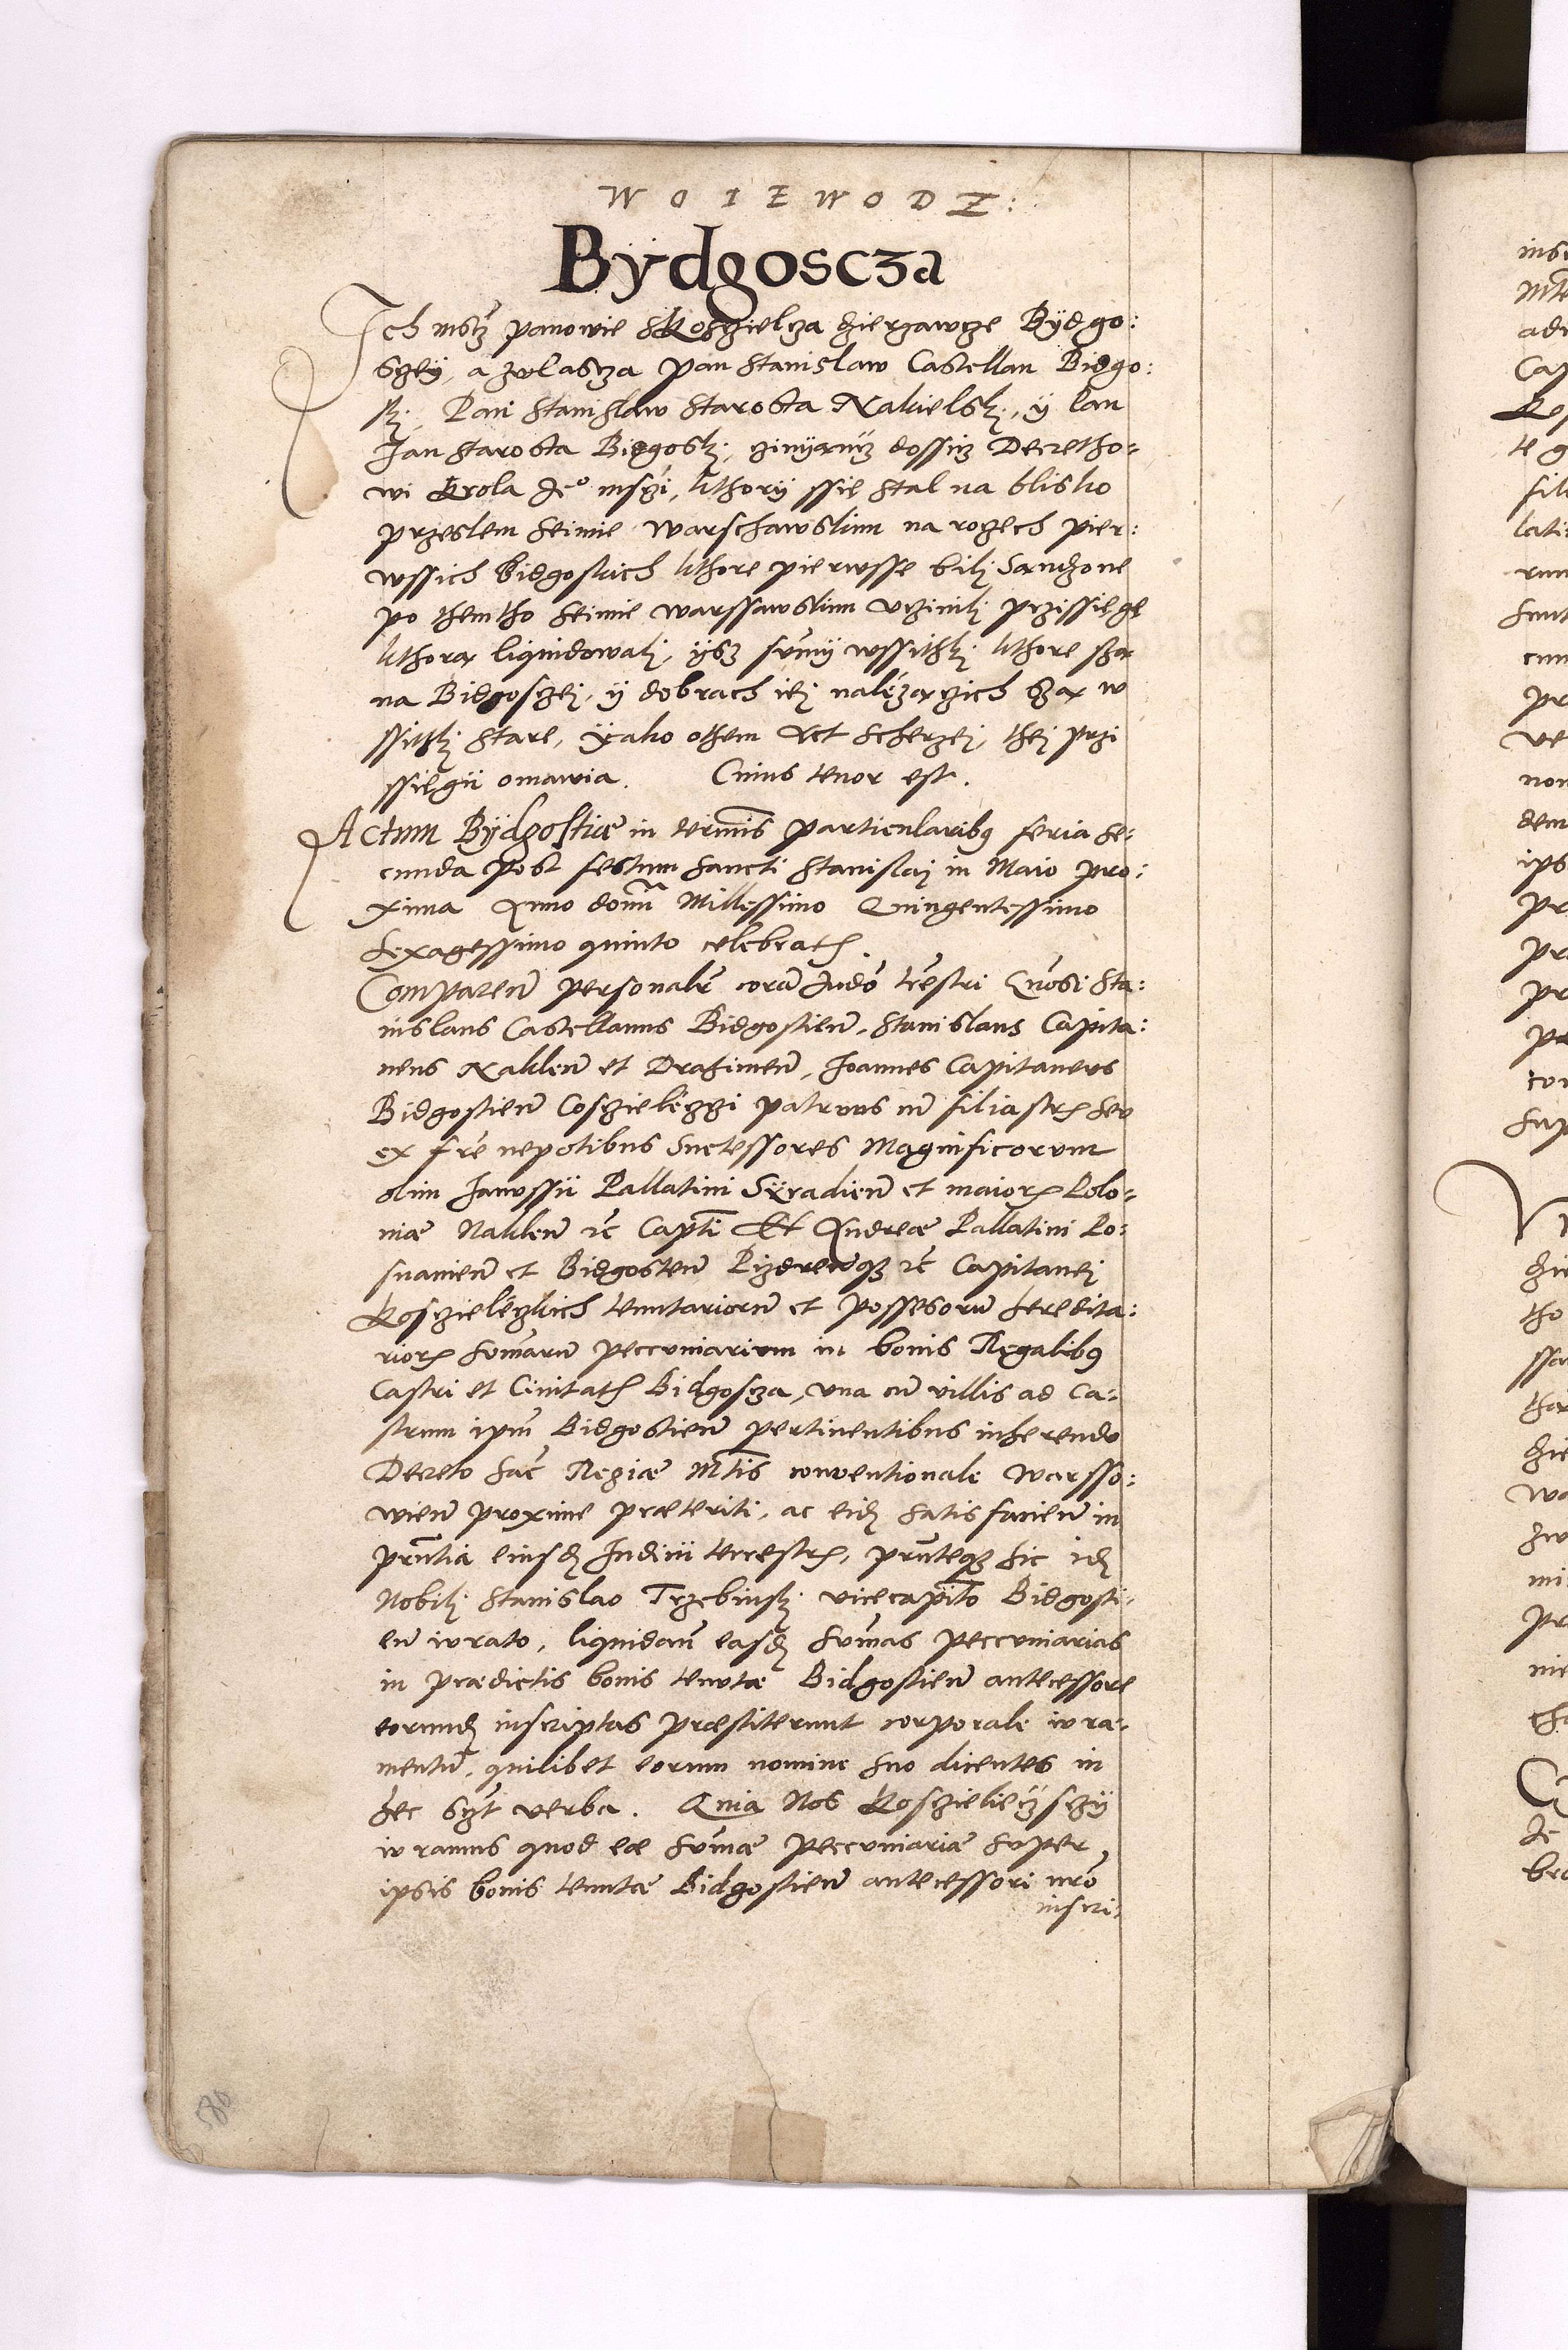 WOIEWODZ:
Bÿdgoscza
Ich mscz panowie Koszczielcza dzierzawcze Bÿdgo:
sczeÿ, a zwlascza pan Stanislaw Castellan Bidgo:
ski, Pan Stanislaw Starosta Nakielski, ÿ Pan
Jan Starosta Bidgoski, dossicz Decretho-
wi Krola Jeº msczi, kthorÿ ssie stal na blisko
przeslem Seimie Warschawskim na roczech pier:
wssich bidgoskich kthore pierwsse bili Sandzone
po themtho Seimie warssawskim vczinili przissiege
kthora liquidowali, ÿsz sumÿ wssithki kthore sza
na Bidgosczei, ÿ dobrach iei nalézaczich sza w
ssithki stare, ÿako othem Act scherzei, thei przi
ssiegii omawia. Cuius tenor est.
Actum Bÿdgostiæ in terminis particularibus feria se-
cunda post festum Sancti Stanislai in Maio pro:
xima Anno domini Millessimo Quingentessimo
sexagessimo quinto celebratis.
Comparen personaliter coram Judo trestri Gnosi Sta:
nislaus Castellanus Bidgostien, Stanislaus Capita:
neus Naklen et Drahimen, Joannes Capitaneus
Bidgostien Cosczieleczzi patruus cum filiastris seu
ex fre nepotibus Suctessores Magnificorum
olim Janussii Pallatini Sÿradien et maioris Polo-
niæ Naklen ic Capti Et Andreæ Pallatini Po:
snanien et Bidgosten Pizdrenqz ic Capitanei
Kosczieléczkich tenutariorum et possesorum heredita:
riorum summarum peccuniarium in bonis Regalibus
Castri et Civitatis Bidgoscza, una cum villis ad ca-
strum ipm Bidgostien pertinentibus inherendo
Decreto Sac Regiæ Mtis conventionale Warsso:
wien proxime præteriti, ac eidem satis facien in
prntia eiusdem Judicii terrestris, prnteqz hic idem
Nobili Stanislao Trzebinski vicecapito Bidgosti-
en iurato, liquidan easdem summas peccuniarias
in prædictis bonis tenutæ Bidgostien antecessore
eorundem inscriptas præstiterunt corporale iura-
mentum, quilibet eorum nomine suo dicentes in
hec verba. Quia Nos Kosczielieczsczÿ
iuramus quod eæ summæ peccuniariæ super
ipsis bonis tenutæ Bidgostien antecessori nro
inscri:
580